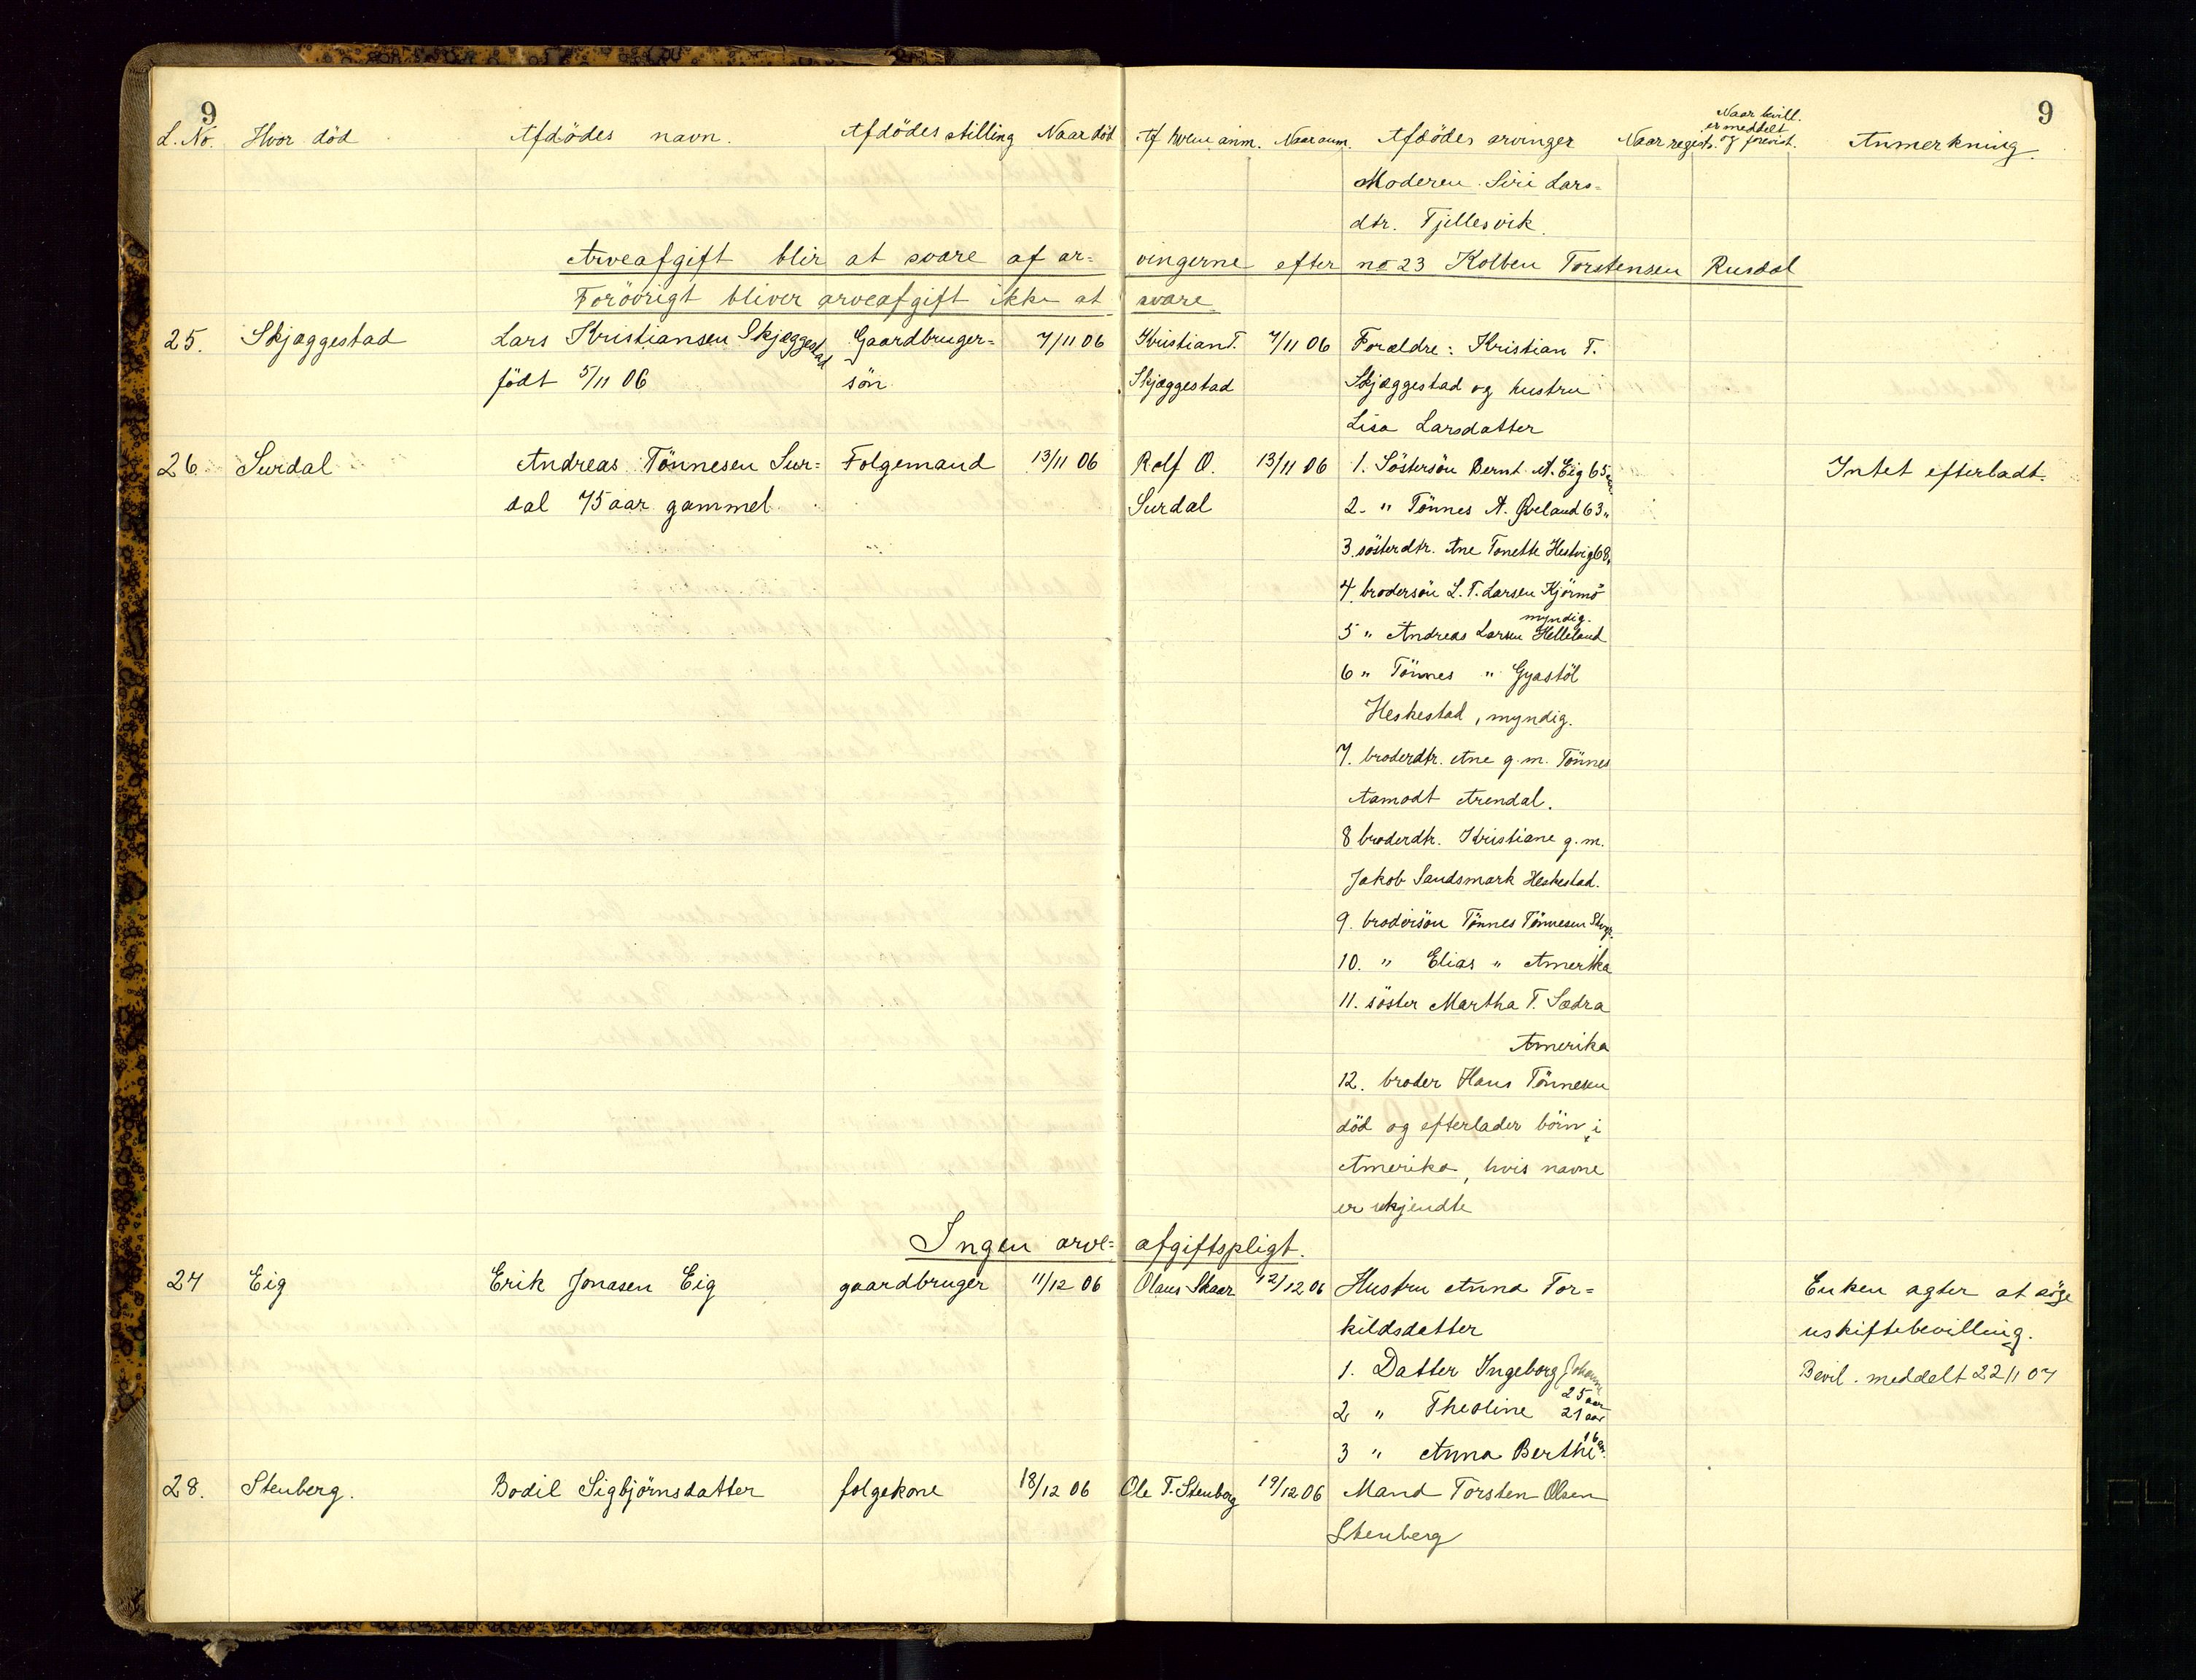 9
9
L. No. Hvor död Afdödes navn. Afdödes stilling Naar död Af hvem anm. Naar anm. Afdödes arvinger Naar registr. Naar bevill. er meddelt og forevist. Anmerkning.
Moderen Siri Lars=
dtr. Fjellesvik.
Arveafgift blir at svare af ar= vingerne efter no 23 Kolben Torstensen Rusdal
Forövrigt bliver arveafgift ikke at svare.
25. Skjæggestad Lars Kristiansen Skjæggestad Gaardbruger= 7/11 06 Kristian T. 7/11 06 Forældre: Kristian T.
födt 5/11 06 sön Skjæggestad Skjæggestad og hustru
Lisa Larsdatter
26. Surdal Andreas Tönnesen Sur= Folgemand 13/11 06 Rolf O. 13/11 06 1. Söstersön Bernt A. Eig 65 aar Intet efterladt.
dal 75 aar gammel Surdal 2. " Tönnes A. Øveland 63 "
3. sösterdtr. Ane Tonette Hestvig 68 "
4. brodersön L. T. Larsen Kjörmo
myndig.
5 " Andreas Larsen Helleland
6 " Tönnes " Gyastöl
Heskestad, myndig.
7. broderdtr. Ane g. m. Tönnes
Aamodt Arendal.
8 broderdtr. Kristiane g. m.
Jakob Sandsmark Heskestad.
9. brodersön Tönnes Tönnesen
10. " Elias " Amerika
11. söster Martha T. Sædra
Amerika
12. broder Hans Tönnesen
död og efterlader börn i
Amerika, hvis navne
er ukjendte
Ingen arve= afgiftspligt.
27 Eig Erik Jonasen Eig gaardbruger 11/12 06 Olaus Skaar 12/12 06 Hustru Anna Tor= Enken agter at söge
kildsdatter uskiftebevilling.
1. Datter Ingeborg Johanne 25 aar Bevil. meddelt 22/1 07
2 " Theoline 21 aar
3 " Anna Berthe 16 aar.
28. Stenberg. Bodil Sigbjörnsdatter folgekone 18/12 06 Ole T. Stenberg 19/12 06 Mand Torsten Olsen
Stenberg